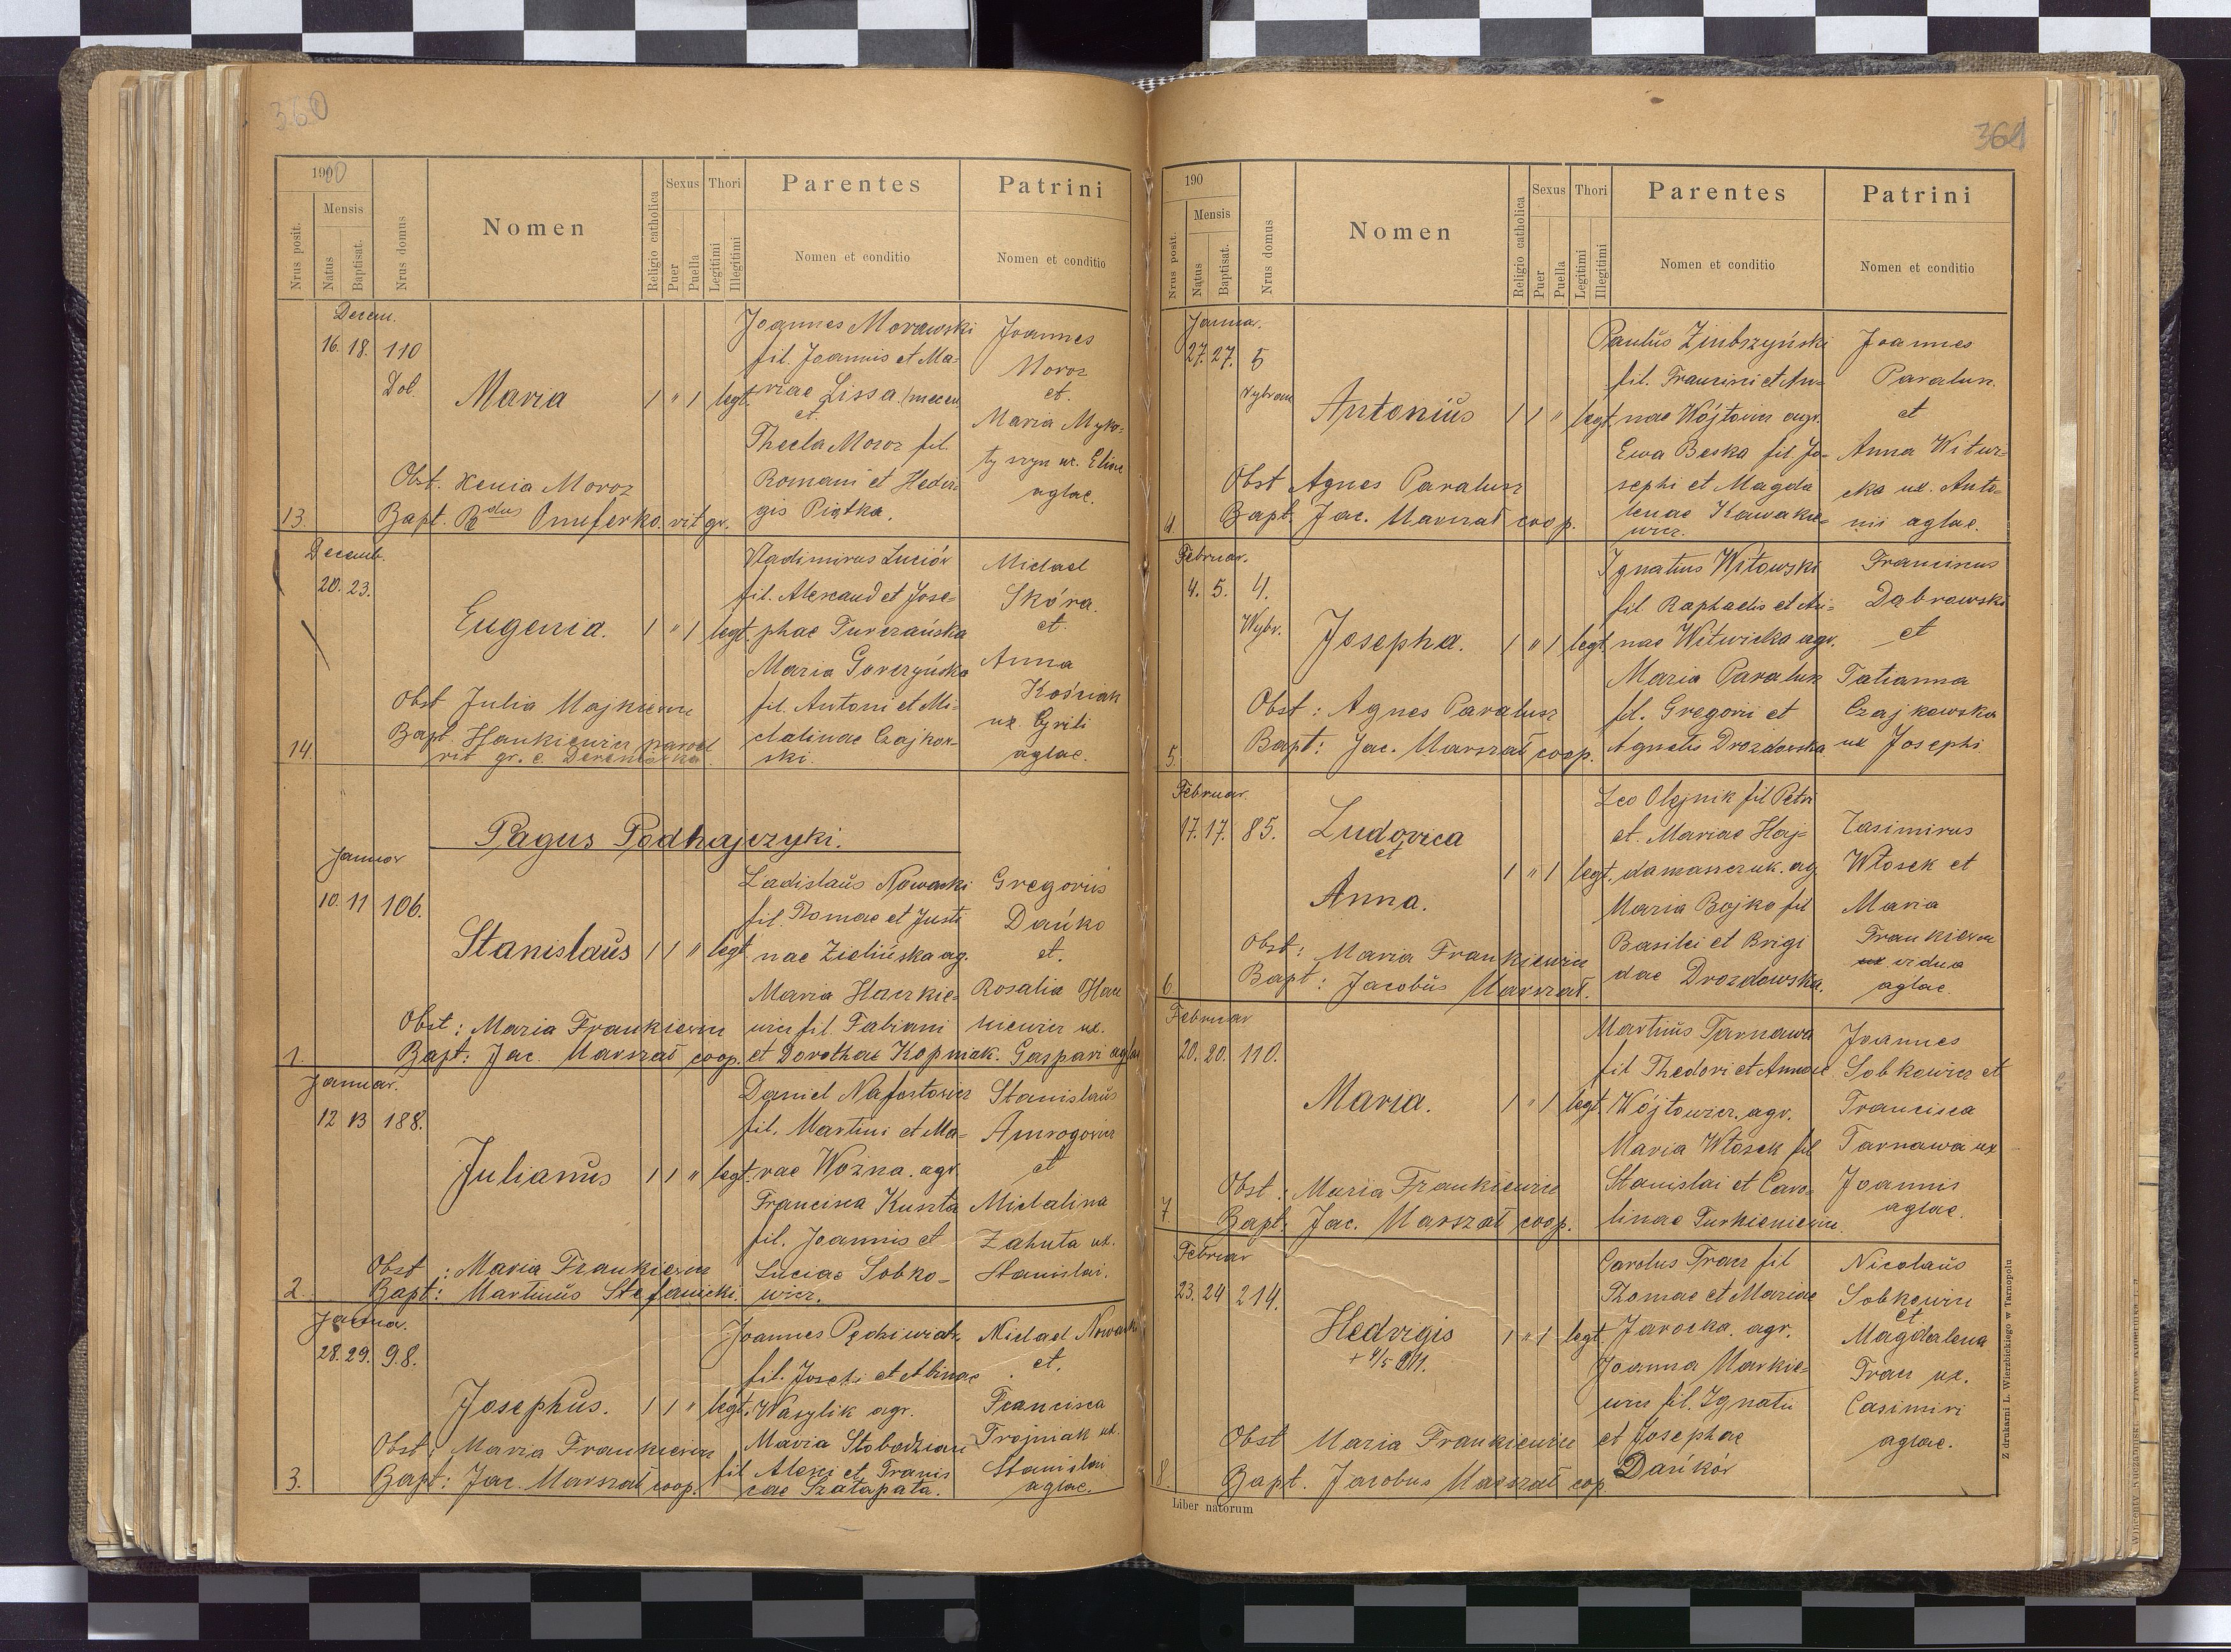 360
1900
Nrus posit.
Mensis
Natus
Baptisat.
Nrus domus
Nomen
Religio catholica
Sexus
Puer
Puella
Thori
Legitimi
Illegitimi
Parentes
Nomen et conditio
Patrini
Nomen et conditio
Decem.
16. 18. 110
Dol.
Maria
1 " 1 legt.
Joannes Morawski
fil. Joannis et Ma-
riae Lissa.
et
Thecla Moroz fil.
Romani et Hedvi-
gis Piątka.
Joannes
Moroz
et.
Maria Myko-
aglae.
Obst. Xenia Moroz
13.
Bapt. Rdus Onuferko. rit gr.
Decemb.
20. 23.
Eugenia.
1 " 1 legt.
Vladimirus Luciów
fil. Alexand et Jose-
phae Turczańska
Maria Gorczyńska
fil. Antoni et Mi-
chalinae Czajkow-
ski.
Michael
Skóra.
et.
Anna
Kośniak
ux. Cyrili
aglae.
Obst Julia Majkiewicz
14.
Bapt. Hankiewicz paroch
rit gr. c. Derenówka
Pagus Podhajczyki.
Januar
10. 11 106.
Stanislaŭs
1 1 " legt.
Ladislaŭs Nowacki
fil. Thomae et Justi
nae Zielińska ag.
Maria Haczkie-
wicz fil. Fabiani
et Dorotheae Kopniak.
Gregoriŭs
Dańko
et.
Rosalia Hac
kiewicz ux.
Gaspari aglae
Obst: Maria Frankiewicz
1.
Bapt: Jac. Marszał coop.
Januar.
12 13 188.
Julianŭs
1 1 " legt.
Daniel Nafostowicz
fil. Martini et Ma-
riae Woźna. agr.
Francisca Kuszta
fil. Joannis et
Luciae Sobko-
wicz.
Stanislaŭs
Amrogowicz
et
Michalina
Zahuta ux.
Stanislai.
Obst: Maria Frankiewicz
2.
Bapt: Martinŭs Stefanicki.
Januar.
28. 29. 98.
Josephŭs.
1 1 " legt.
Joannes Pędziwiatr
fil. Josephi et Albinae
Wasylik agr.
Maria Słobodzian
fil Alexi et Francis
cae Szałapata.
Michael Nowacki
et.
Francisca
Trojniak ux.
Stanislai
aglae.
Obst: Maria Frankiewicz
3.
Bapt: Jac. Marszał coop.
361
190
Nrus posit.
Mensis
Natus
Baptisat.
Nrus domus
Nomen
Religio catholica
Sexus
Puer
Puella
Thori
Legitimi
Illegitimi
Parentes
Nomen et conditio
Patrini
Nomen et conditio
Januar.
27. 27. 5
Antoniŭs
1 1 " legt.
Paulŭs Zinbrzyński
fil. Francisci et An-
nae Wójtowicz agr.
Ewa Beska fil. Jo-
sephi et Magda
lenae Kawakie-
wicz.
Joannes
Paralusz.
et
Anna Witwi-
cka ux. Anto-
nii aglae.
Obst Agnes Paralusz
4.
Bapt. Jac. Marszał coop.
Februar.
4. 5. 4.
Wybr.
Josepha.
1 " 1 legt.
Ignatius Witowski
fil Raphaelis et An-
nae Witwicka agr.
Maria Paralusz
fil. Gregorii et
Agnetis Drozdowska
Franciscus
Dąbrowski
et
Tatianna
Czajkowska
ux Josephi
Obst: Agnes Paralusz
5.
Bapt: Jac. Marszał coop.
Februar.
17. 17. 85.
Ludovica
et
Anna.
1 " 1 legt.
Leo Olejnik fil Petri
et Mariae Haj-
damaszczuk. ag.
Maria Bojko fil
Basilei et Brigi
dae Drozdowska.
Casimirus
Włosek et
Maria
Frankiewicz
vidua
aglae.
Obst: Maria Frankiewicz
6.
Bapt: Jacobŭs Marszał.
Februar
20. 20. 110.
Maria.
1 " 1 legt.
Martinŭs Tarnawa
fil Thedori et Annae
Wójtowicz. agr.
Maria Włosek fil
Stanislai et Caro-
linae Turkieniewicz
Joannes
Sobkowicz et
Francisca
Tarnawa ux
Joannis
aglae.
Obst: Maria Frankiewicz
7.
Bapt. Jac. Marszał coop.
Februar
23. 24 214.
Hedvigis
+ 4/5 911.
1 " 1 legt.
Carolus Tracz fil
Thomae et Mariae
Jarocka. agr.
Joanna Markie-
wicz fil. Ignatii
et Josephae
Dańków
Nicolaŭs
Sobkowicz
et
Magdalena
Tracz ux.
Casimiri
aglae.
Obst Maria Frankiewicz
8.
Bapt. Jacobus Marszał cop
Liber natorum
Z drukarni L. Wierzbickiego w Tarnopolu